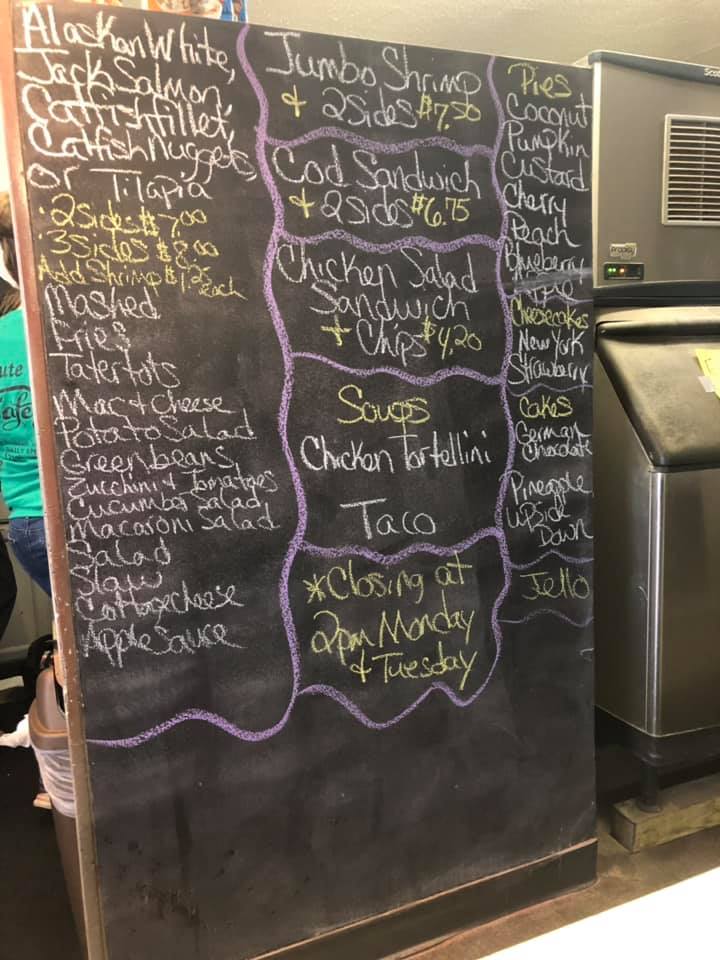 Alaskan White,
Jack Salmon,
Catfish fillet,
Catfish Nuggets
or Tilapia
2 Sides $7.00
3 Sides $8.00
Add Shrimp $1.25
each
Mashed
Fries
Tatertots
Mac + Cheese
Potato Salad
Green beans
Zucchini + Tomatoes
Cucumber Salad
Macaroni Salad
Salad
Slaw
Cottage cheese
Apple Sauce
Jumbo Shrimp
+ 2 Sides $7.50
Cod Sandwich
+ 2 Sides $6.75
Chicken Salad
Sandwich
+ Chips $4.20
Soups
Chicken Tortellini
Taco
*Closing at
2pm Monday
+ Tuesday
Pies
Coconut
Pumpkin
Custard
Cherry
Peach
Blueberry
Cheesecakes
New York
Strawberry
Cakes
German
Chocolate
Pineapple
Upside
Down
Jello
prodigy